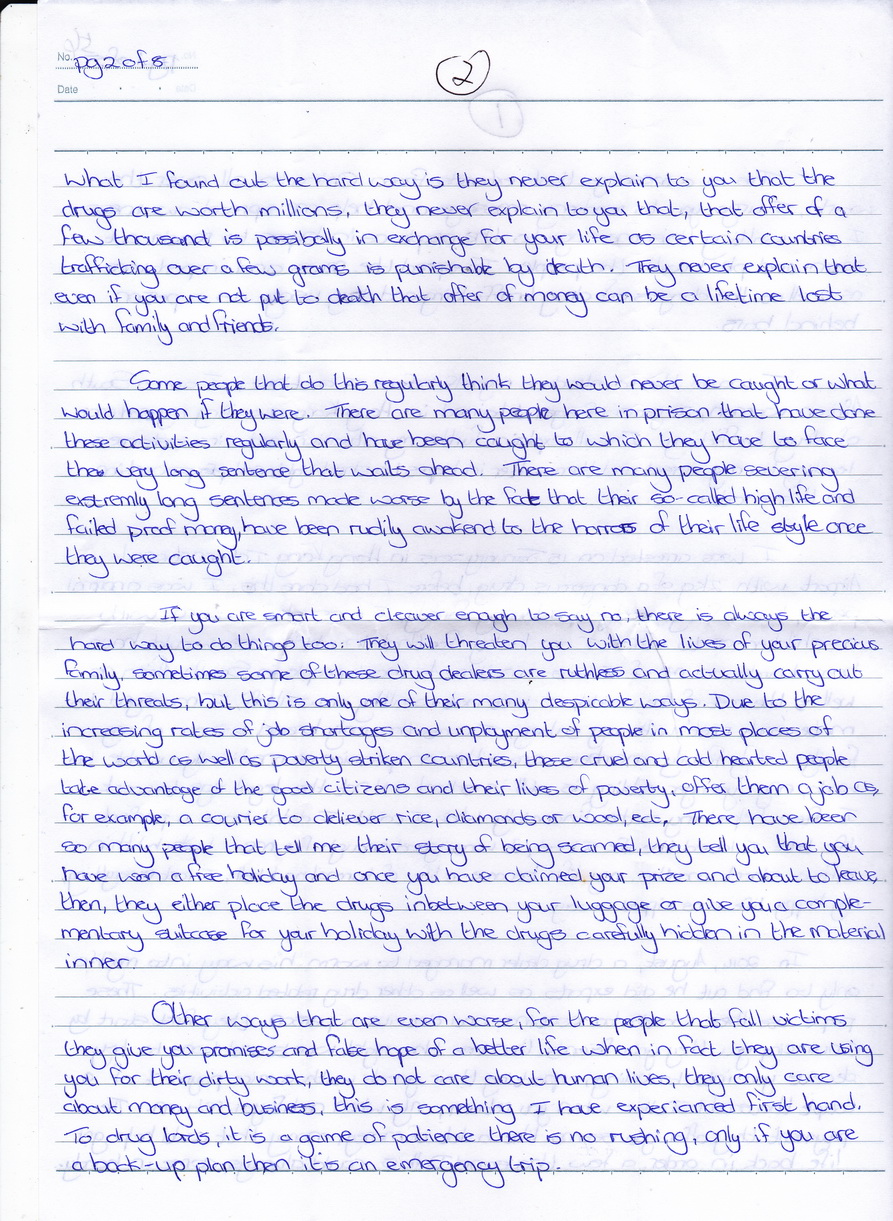 No. pg 2 of 8
2
Date
1
What I found out the hard way is they never explain to you that the
drugs are worth millions, they never explain to you that, that offer of a
few thousand is possibally in exchange for your life as certain countries
trafficking over a few grams is punishable by death. They never explain that
even if you are not put to death that offer of money can be a lifetime lost
with family and friends.
Some people that do this regularly think they would never be caught or what
would happen if they were. There are many people here in prison that have done
these activities regularly and have been caught to which they have to face
the very long sentence that waits ahead. There are many people severing
exstremly long sentences made worse by the fact that their so-called high life and
failed proof money, have been rudily awakend to the horrors of their life style once
they were caught.
If you are smart and cleaver enough to say no, there is always the
hard way to do things too. They will threaten you with the lives of your precious
family, sometimes some of these drug dealers are ruthless and actually carry out
their threats, but this is only one of their many despicable ways. Due to the
increasing rates of job shortages and unployment of people in most places of
the world as well as poverty striken countries, these cruel and cold hearted people
take advantage of the good citizens and their lives of poverty, offer them a job as,
for example, a courier to deliever rice, diamonds or wool, ect. There have been
so many people that tell me their story of being scammed, they tell you that you
have won a free holiday and once you have claimed your prize and about to leave,
then, they either place the drugs inbetween your luggage or give you a comple-
mentary suitcase for your holiday with the drugs carefully hidden in the material
inner.
Other ways that are even worse, for the people that fall victims
they give you promises and fake hope of a better life when in fact they are using
you for their dirty work, they do not care about human lives, they only care
about money and business, this is something I have experianced first hand.
To drug lords, it is a game of patience there is no rushing, only if you are
a back-up plan then it is an emergency trip.